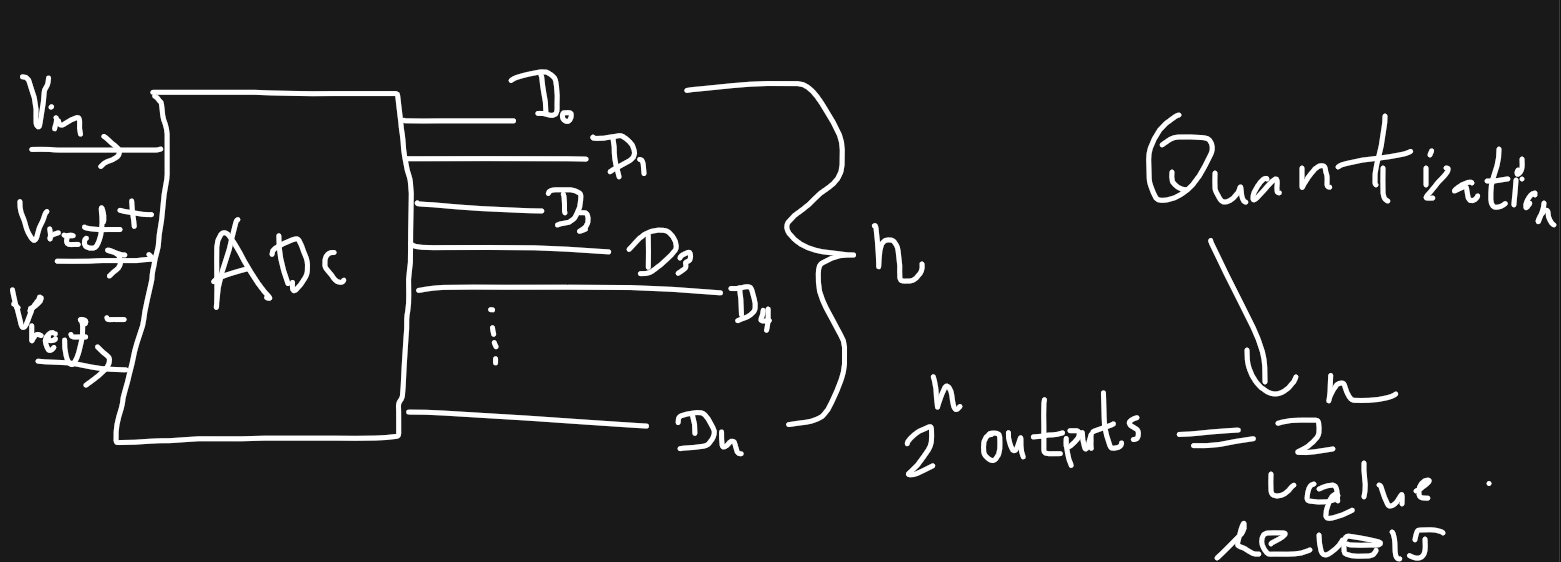 Vin
Vref+
Vref-
ADC
D0
D1
D2
D3
D4
Dn
n
Quantization
2^n outputs = 2^n
value
levels